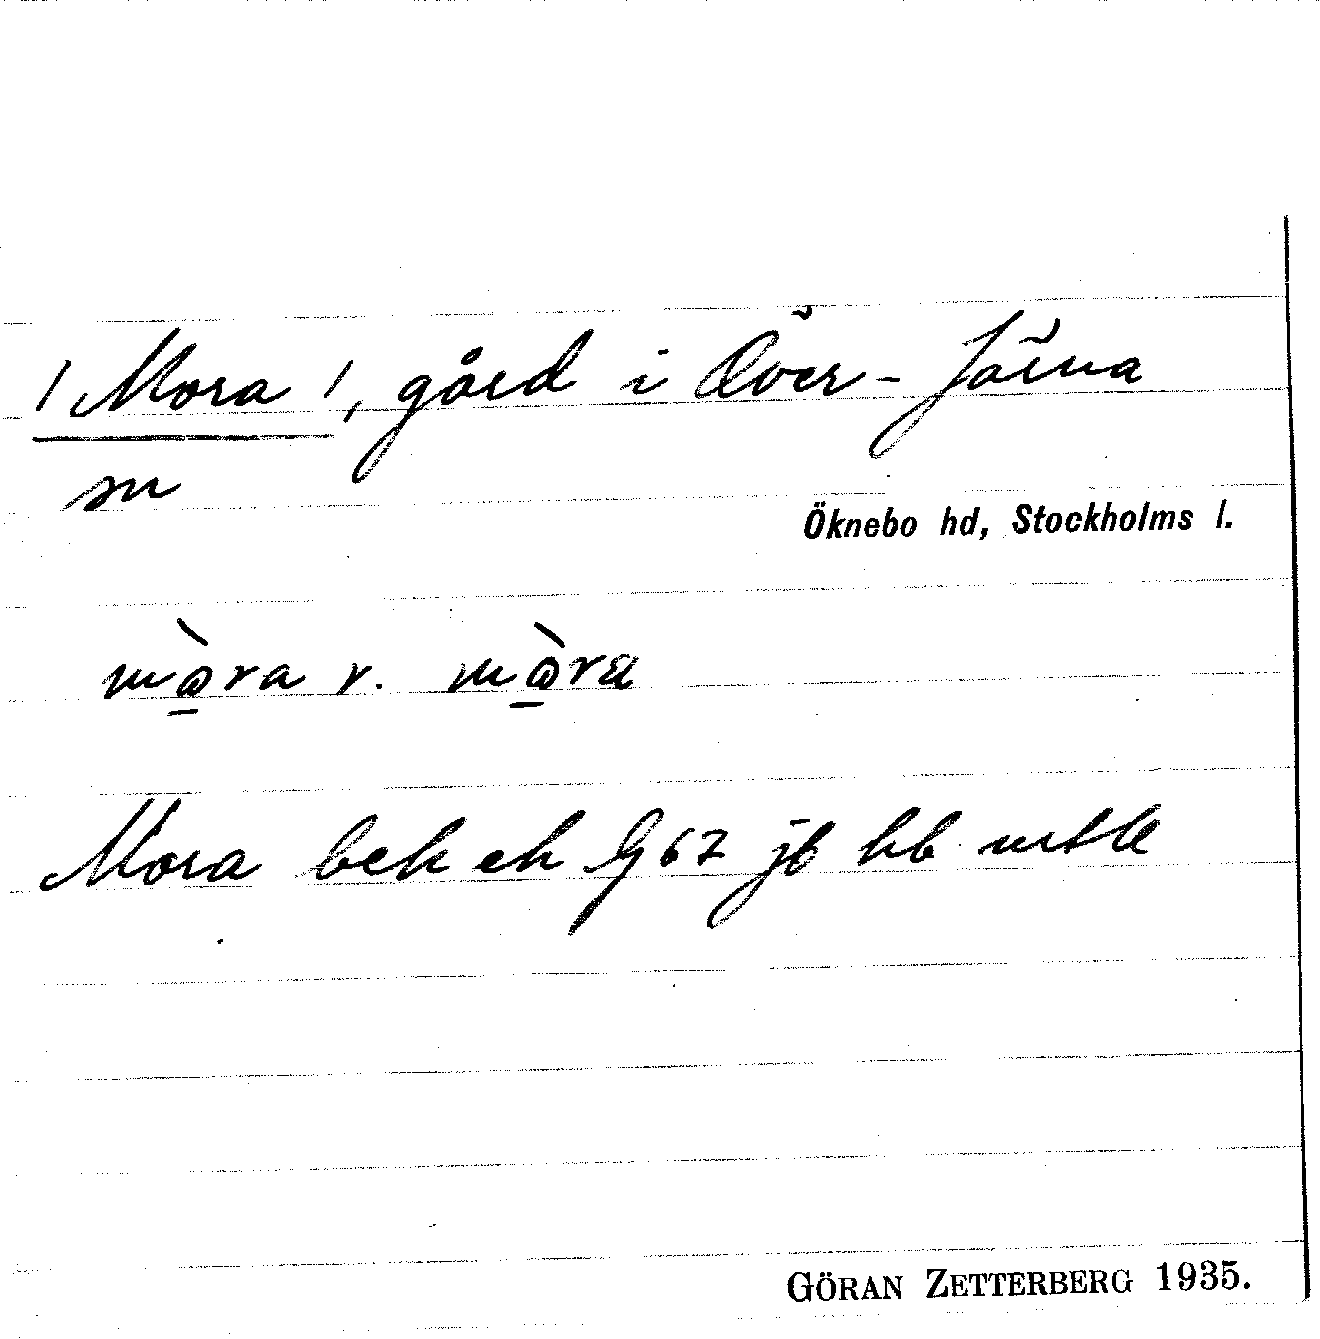 / Mora /, gård i Över-Järna
sn
Öknebo hd, Stockholms l.
mɷ̱̀ra r. mɷ̱̀ra
Mora bek ek G 67 jb hb
GÖRAN ZETTERBERG 1935.